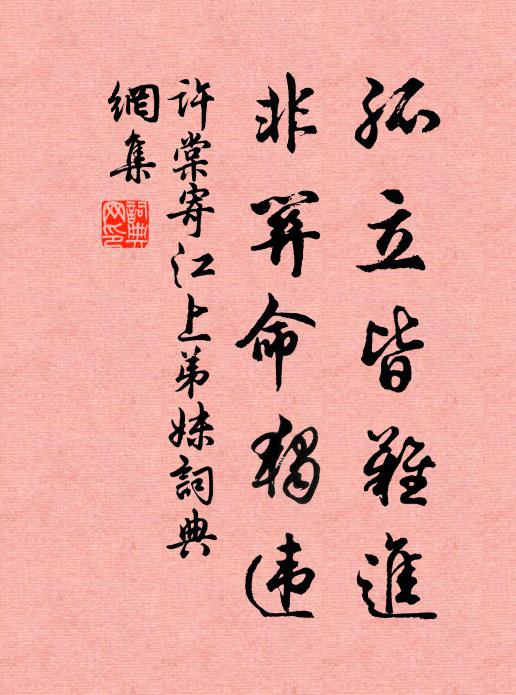 孤立皆難進
非關命獨違
許棠寄江上弟妹詞典
網集
詞典
网印